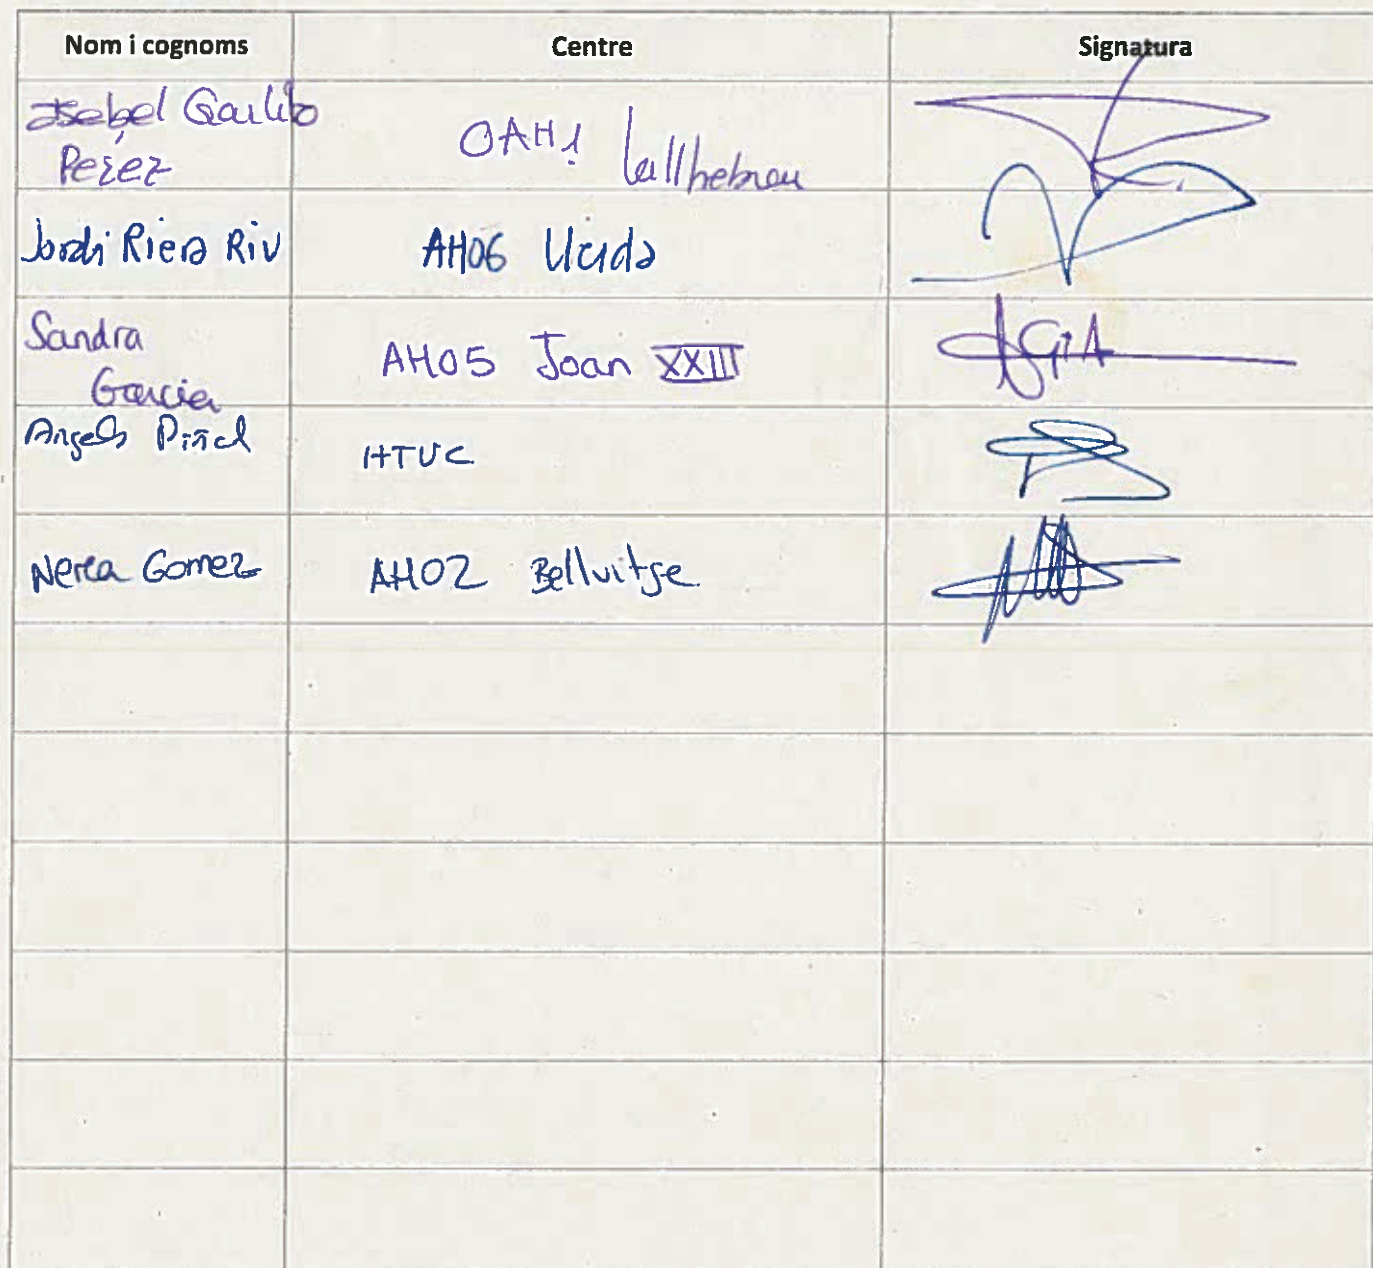 Nom i cognoms Centre Signatura
Isabel
Perez OAH1
Jordi Riera Riu AH06 Lleida
Sandra
Garcia AH05 Joan XXIII
Angels Piñol HTVC
Nerea Gomez AH02 Bellvitge